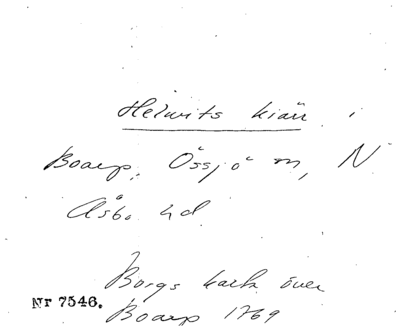 Helwits kiärr i
Boarp, Össjö sn, N
Åsbo hd
Borgs karta över
Nr 7546.
Boarp 1769